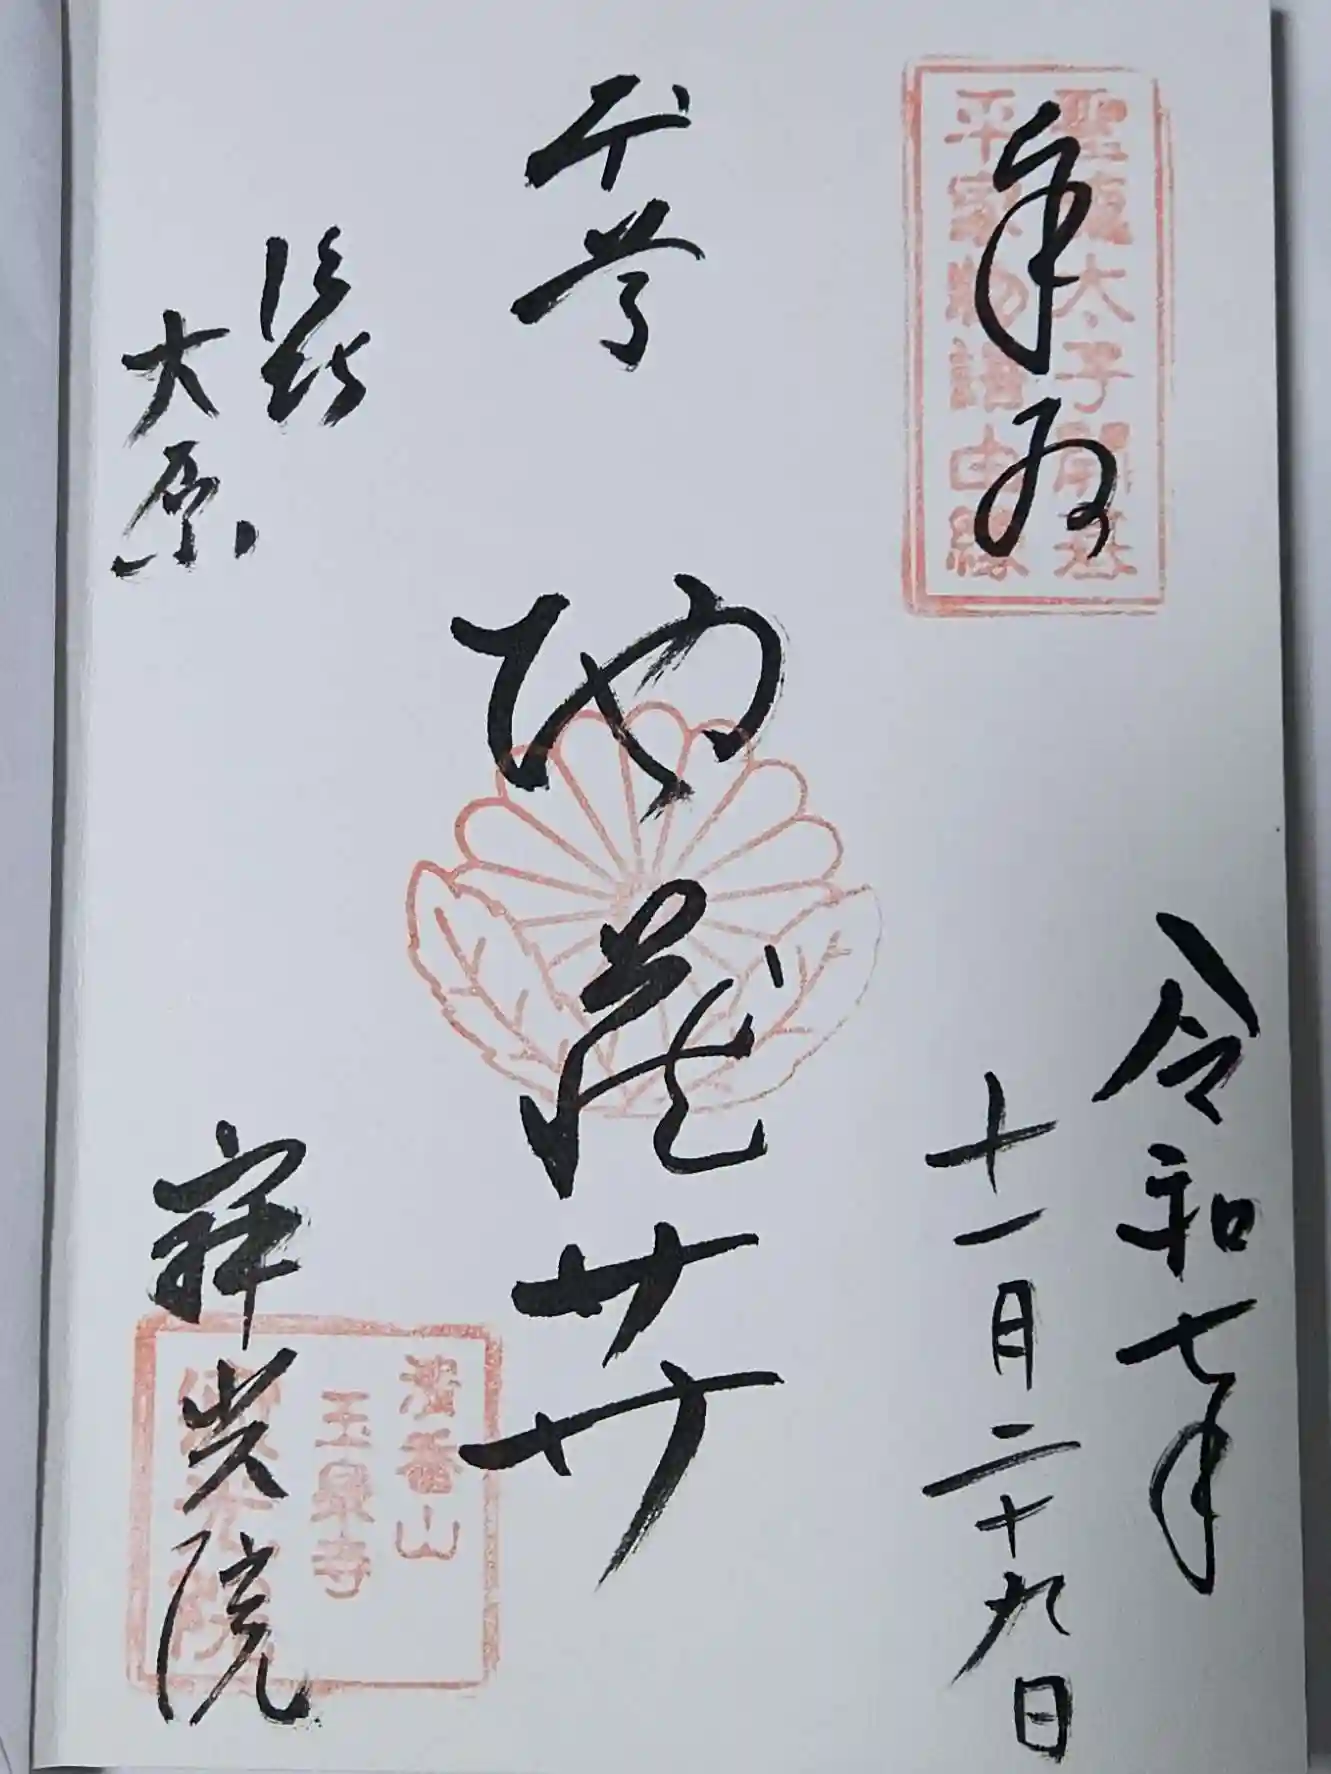 奉拝
聖徳太子開基
平家物語由縁
令和七年
十一月二十九日
地蔵𦬇
大原
寂光院
清香山
玉泉寺
寂光院